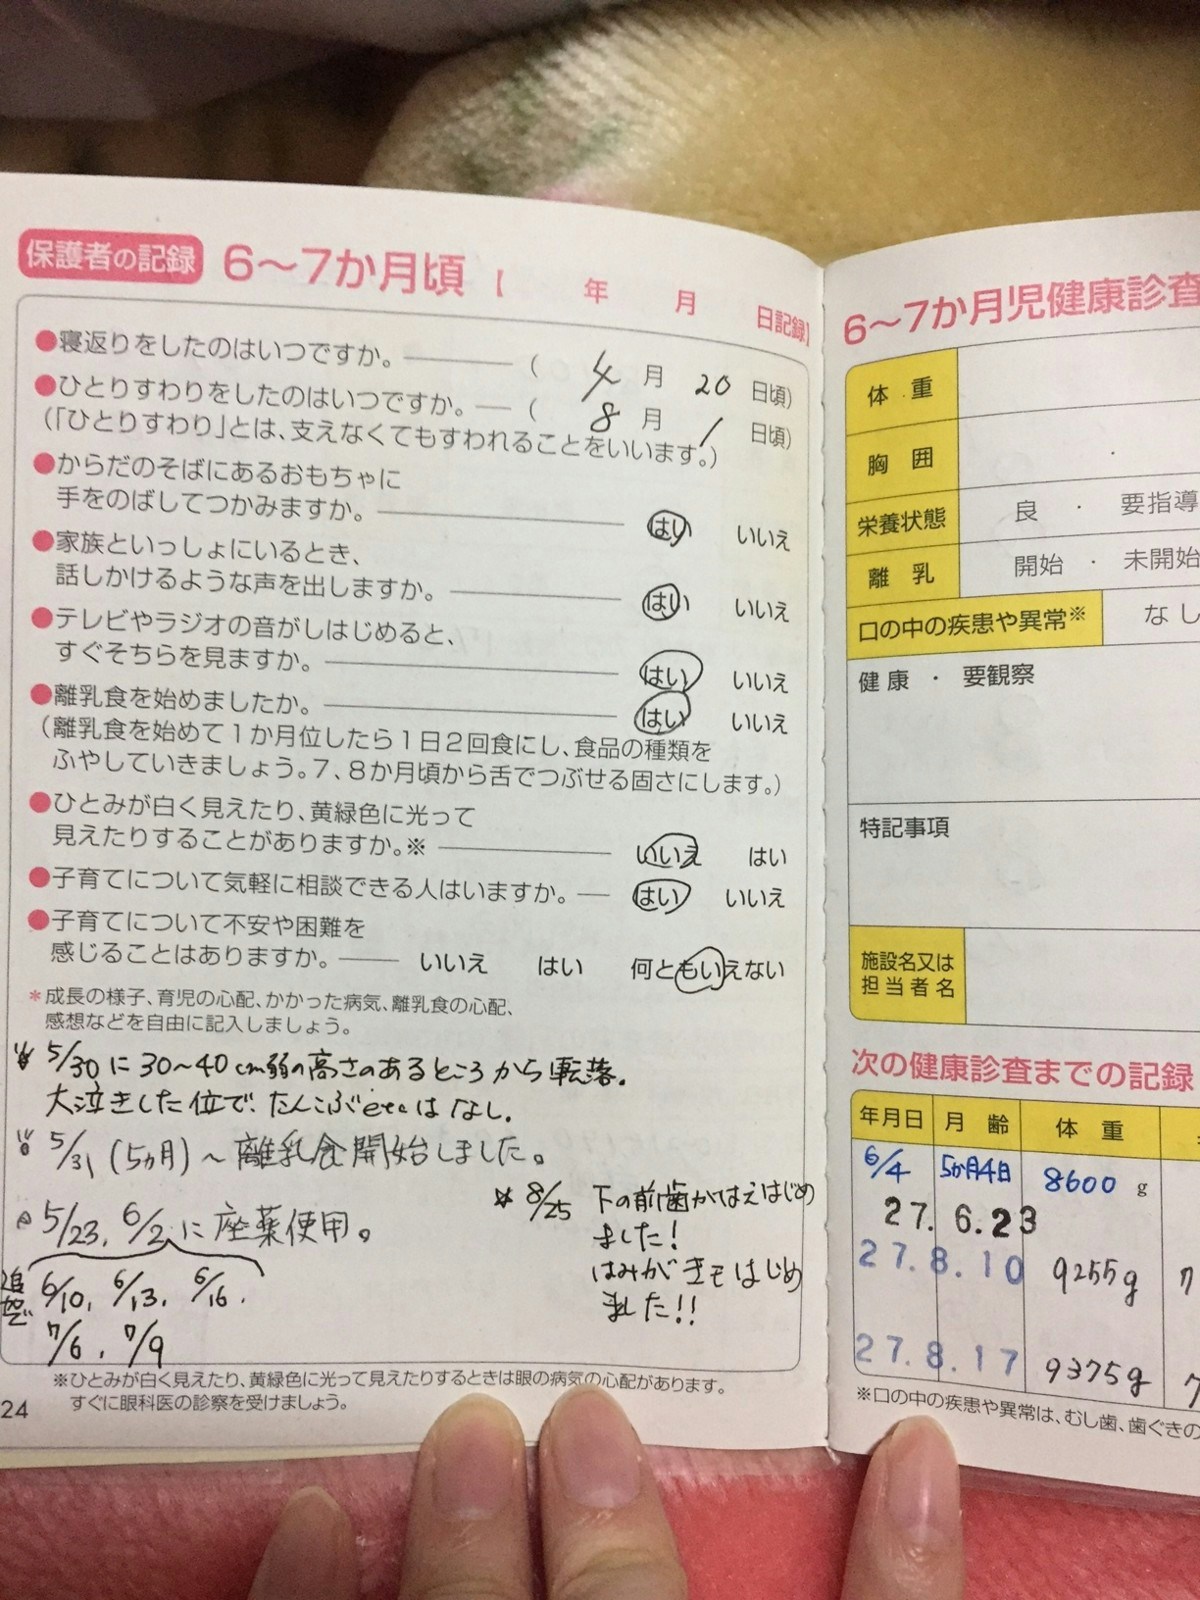 保護者の記録 6～7か月頃【　年　月　日記録】
●寝返りをしたのはいつですか。――（ 4 月 20 日頃）
●ひとりすわりをしたのはいつですか。―（ 8 月 1 日頃）
（「ひとりすわり」とは、支えなくてもすわれることをいいます。）
●からだのそばにあるおもちゃに
手をのばしてつかみますか。―― はい いいえ
●家族といっしょにいるとき、
話しかけるような声を出しますか。―― はい いいえ
●テレビやラジオの音がしはじめると、
すぐそちらを見ますか。―― はい いいえ
●離乳食を始めましたか。―― はい いいえ
（離乳食を始めて１か月位したら１日２回食にし、食品の種類を
ふやしていきましょう。７、８か月頃から舌でつぶせる固さにします。）
●ひとみが白く見えたり、黄緑色に光って
見えたりすることがありますか。※―― いいえ はい
●子育てについて気軽に相談できる人はいますか。― はい いいえ
●子育てについて不安や困難を
感じることはありますか。― いいえ はい 何ともいえない
＊成長の様子、育児の心配、かかった病気、離乳食の心配、
感想などを自由に記入しましょう。
5/30に30～40cm弱の高さのあるところから転落。
大泣きした位で、たんこぶetcはなし。
5/31 (5ヵ月)～離乳食開始しました。
5/23, 6/2に座薬使用。
6/10, 6/13, 6/16.
7/6, 7/9
☆8/25 下の前歯がはえはじめ
ました!
はみがきもはじめ
ました!!
※ひとみが白く見えたり、黄緑色に光って見えたりするときは眼の病気の心配があります。
すぐに眼科医の診察を受けましょう。
24
6～7か月児健康診査
体 重
胸 囲
栄養状態 良 ・ 要指導
離 乳 開始 ・ 未開始
口の中の疾患や異常※ なし
健 康 ・ 要観察
特記事項
施設名又は
担当者名
次の健康診査までの記録
年月日 月 齢 体 重
6/4 5か月4日 8600 g
27. 6.23
27.8.10 9255g 7
27.8.17 9375g 7
※口の中の疾患や異常は、むし歯、歯ぐきの